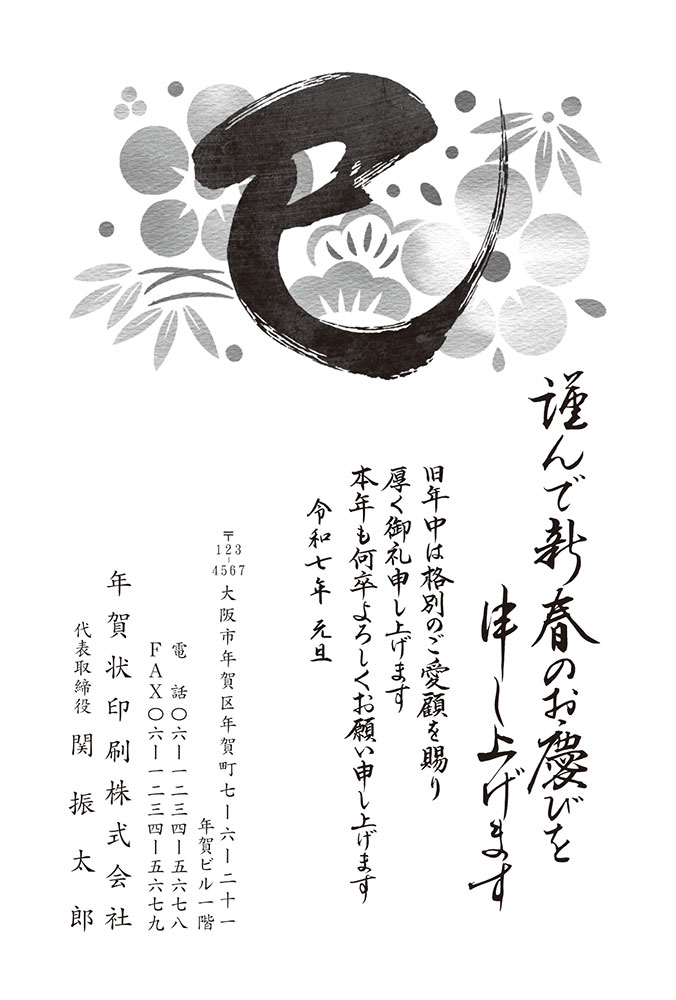 巳
謹んで新春のお慶びを
申し上げます
旧年中は格別のご愛顧を賜り
厚く御礼申し上げます
本年も何卒よろしくお願い申し上げます
令和七年 元旦
〒123-4567
大阪市年賀区年賀町七ー六ー二十一
年賀ビル一階
電 話〇六ー一二三四ー五六七八
FAX〇六ー一二三四ー五六七九
年賀状印刷株式会社
代表取締役 関 振 太 郎